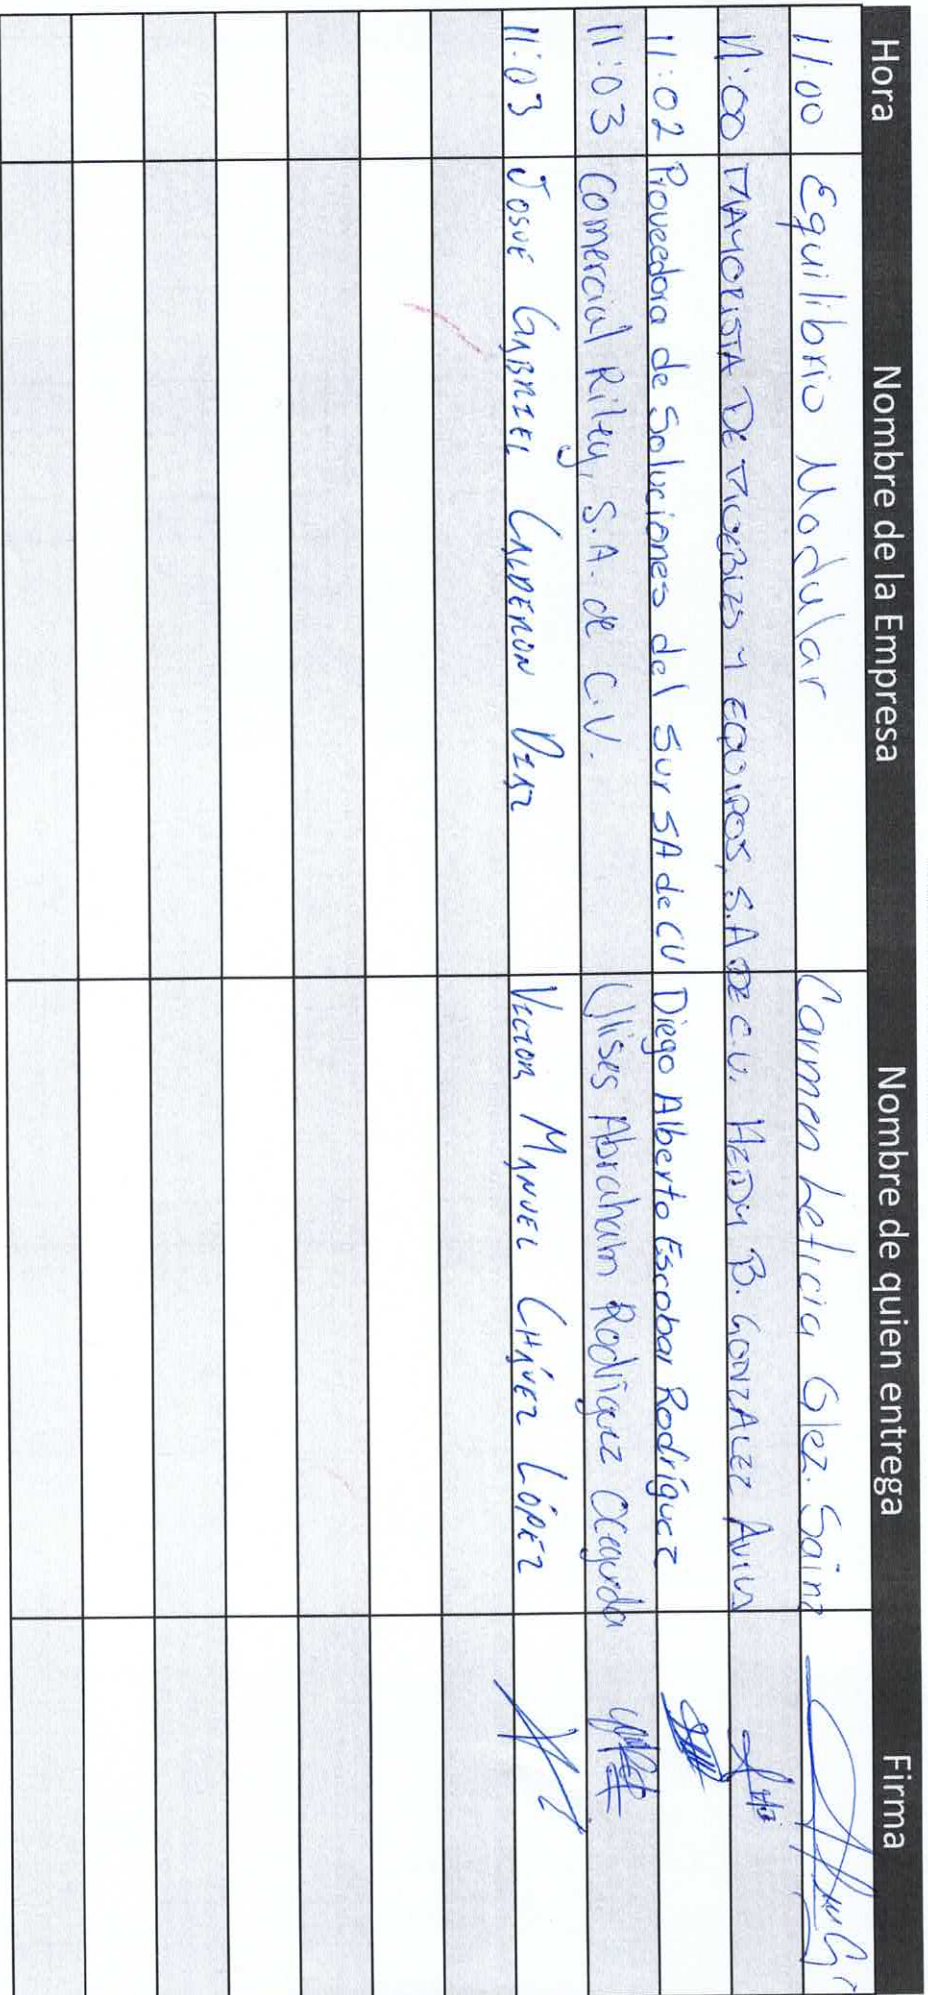 Hora Nombre de la Empresa Nombre de quien entrega Firma
11:00 Equilibrio Modular Carmen Leticia Glez. Sainz
11:00 MAYORISTA DE MUEBLES Y EQUIPOS, S.A DE C.V. HEIDY B. GONZALEZ
11:02 Proveedora de Soluciones del Sur SA de CV Diego Alberto Escobar Rodríguez
11:03 Comercial Riley, S.A. de C.V. Ulises Abraham Rodríguez Ocegueda
11:03 JOSUE GABRIEL CALDERON DIAZ VICTOR MANUEL CHÁVEZ LÓPEZ